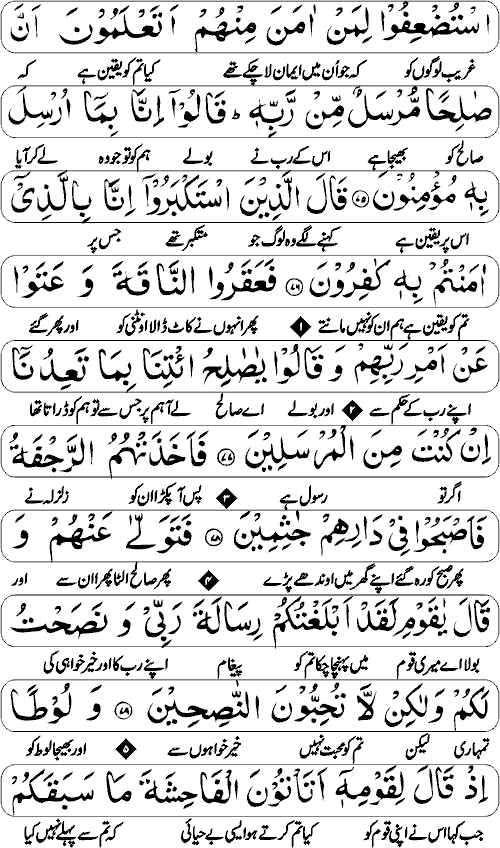 اسْتُضْعِفُوْا لِمَنْ اٰمَنَ مِنْهُمْ اَتَعْلَمُوْنَ اَنَّ
غریب لوگوں کو کہ جو اُن میں ایمان لا چکے تھے کیا تم کو یقین ہے کہ
صٰلِحًا مُّرْسَلٌ مِّنْ رَّبِّهٖ ؕ قَالُوْۤا اِنَّا بِمَاۤ اُرْسِلَ
صالح کو بھیجا ہے اس کے رب نے بولے ہم کو تو جو وہ لے کر آیا
بِهٖ مُؤْمِنُوْنَ ﴿۷۵﴾ قَالَ الَّذِيْنَ اسْتَكْبَرُوْۤا اِنَّا بِالَّذِيْۤ
اس پر یقین ہے کہنے لگے وہ لوگ جو متکبر تھے جس پر
اٰمَنْتُمْ بِهٖ كٰفِرُوْنَ ﴿۷۶﴾ فَعَقَرُوا النَّاقَةَ وَ عَتَوْا
تم کو یقین ہے ہم ان کو نہیں مانتے ۱ پھر انہوں نے کاٹ ڈالا اونٹنی کو اور پھر گئے
عَنْ اَمْرِ رَبِّهِمْ وَ قَالُوْا يٰصٰلِحُ ائْتِنَا بِمَا تَعِدُنَاۤ
اپنے رب کے حکم سے ۲ اور بولے اے صالح لے آ ہم پر جس سے تو ہم کو ڈراتا تھا
اِنْ كُنْتَ مِنَ الْمُرْسَلِيْنَ ﴿۷۷﴾ فَاَخَذَتْهُمُ الرَّجْفَةُ
اگر تو رسول ہے ۳ پس آ پکڑا ان کو زلزلہ نے
فَاَصْبَحُوْا فِيْ دَارِهِمْ جٰثِمِيْنَ ﴿۷۸﴾ فَتَوَلّٰى عَنْهُمْ وَ
پھر صبح کو رہ گئے اپنے گھر میں اوندھے پڑے ۴ پھر صالح الٹا پھرا ان سے اور
قَالَ يٰقَوْمِ لَقَدْ اَبْلَغْتُكُمْ رِسَالَةَ رَبِّيْ وَ نَصَحْتُ
بولا اے میری قوم میں پہنچا چکا تم کو پیغام اپنے رب کا اور خیر خواہی کی
لَكُمْ وَلٰكِنْ لَّا تُحِبُّوْنَ النّٰصِحِيْنَ ﴿۷۹﴾ وَ لُوْطًا
تمہاری لیکن تم کو محبت نہیں خیر خواہوں سے ۵ اور بھیجا لوط کو
اِذْ قَالَ لِقَوْمِهٖۤ اَتَاْتُوْنَ الْفَاحِشَةَ مَا سَبَقَكُمْ
جب کہا اس نے اپنی قوم کو کیا تم کرتے ہو ایسی بے حیائی کہ تم سے پہلے نہیں کیا